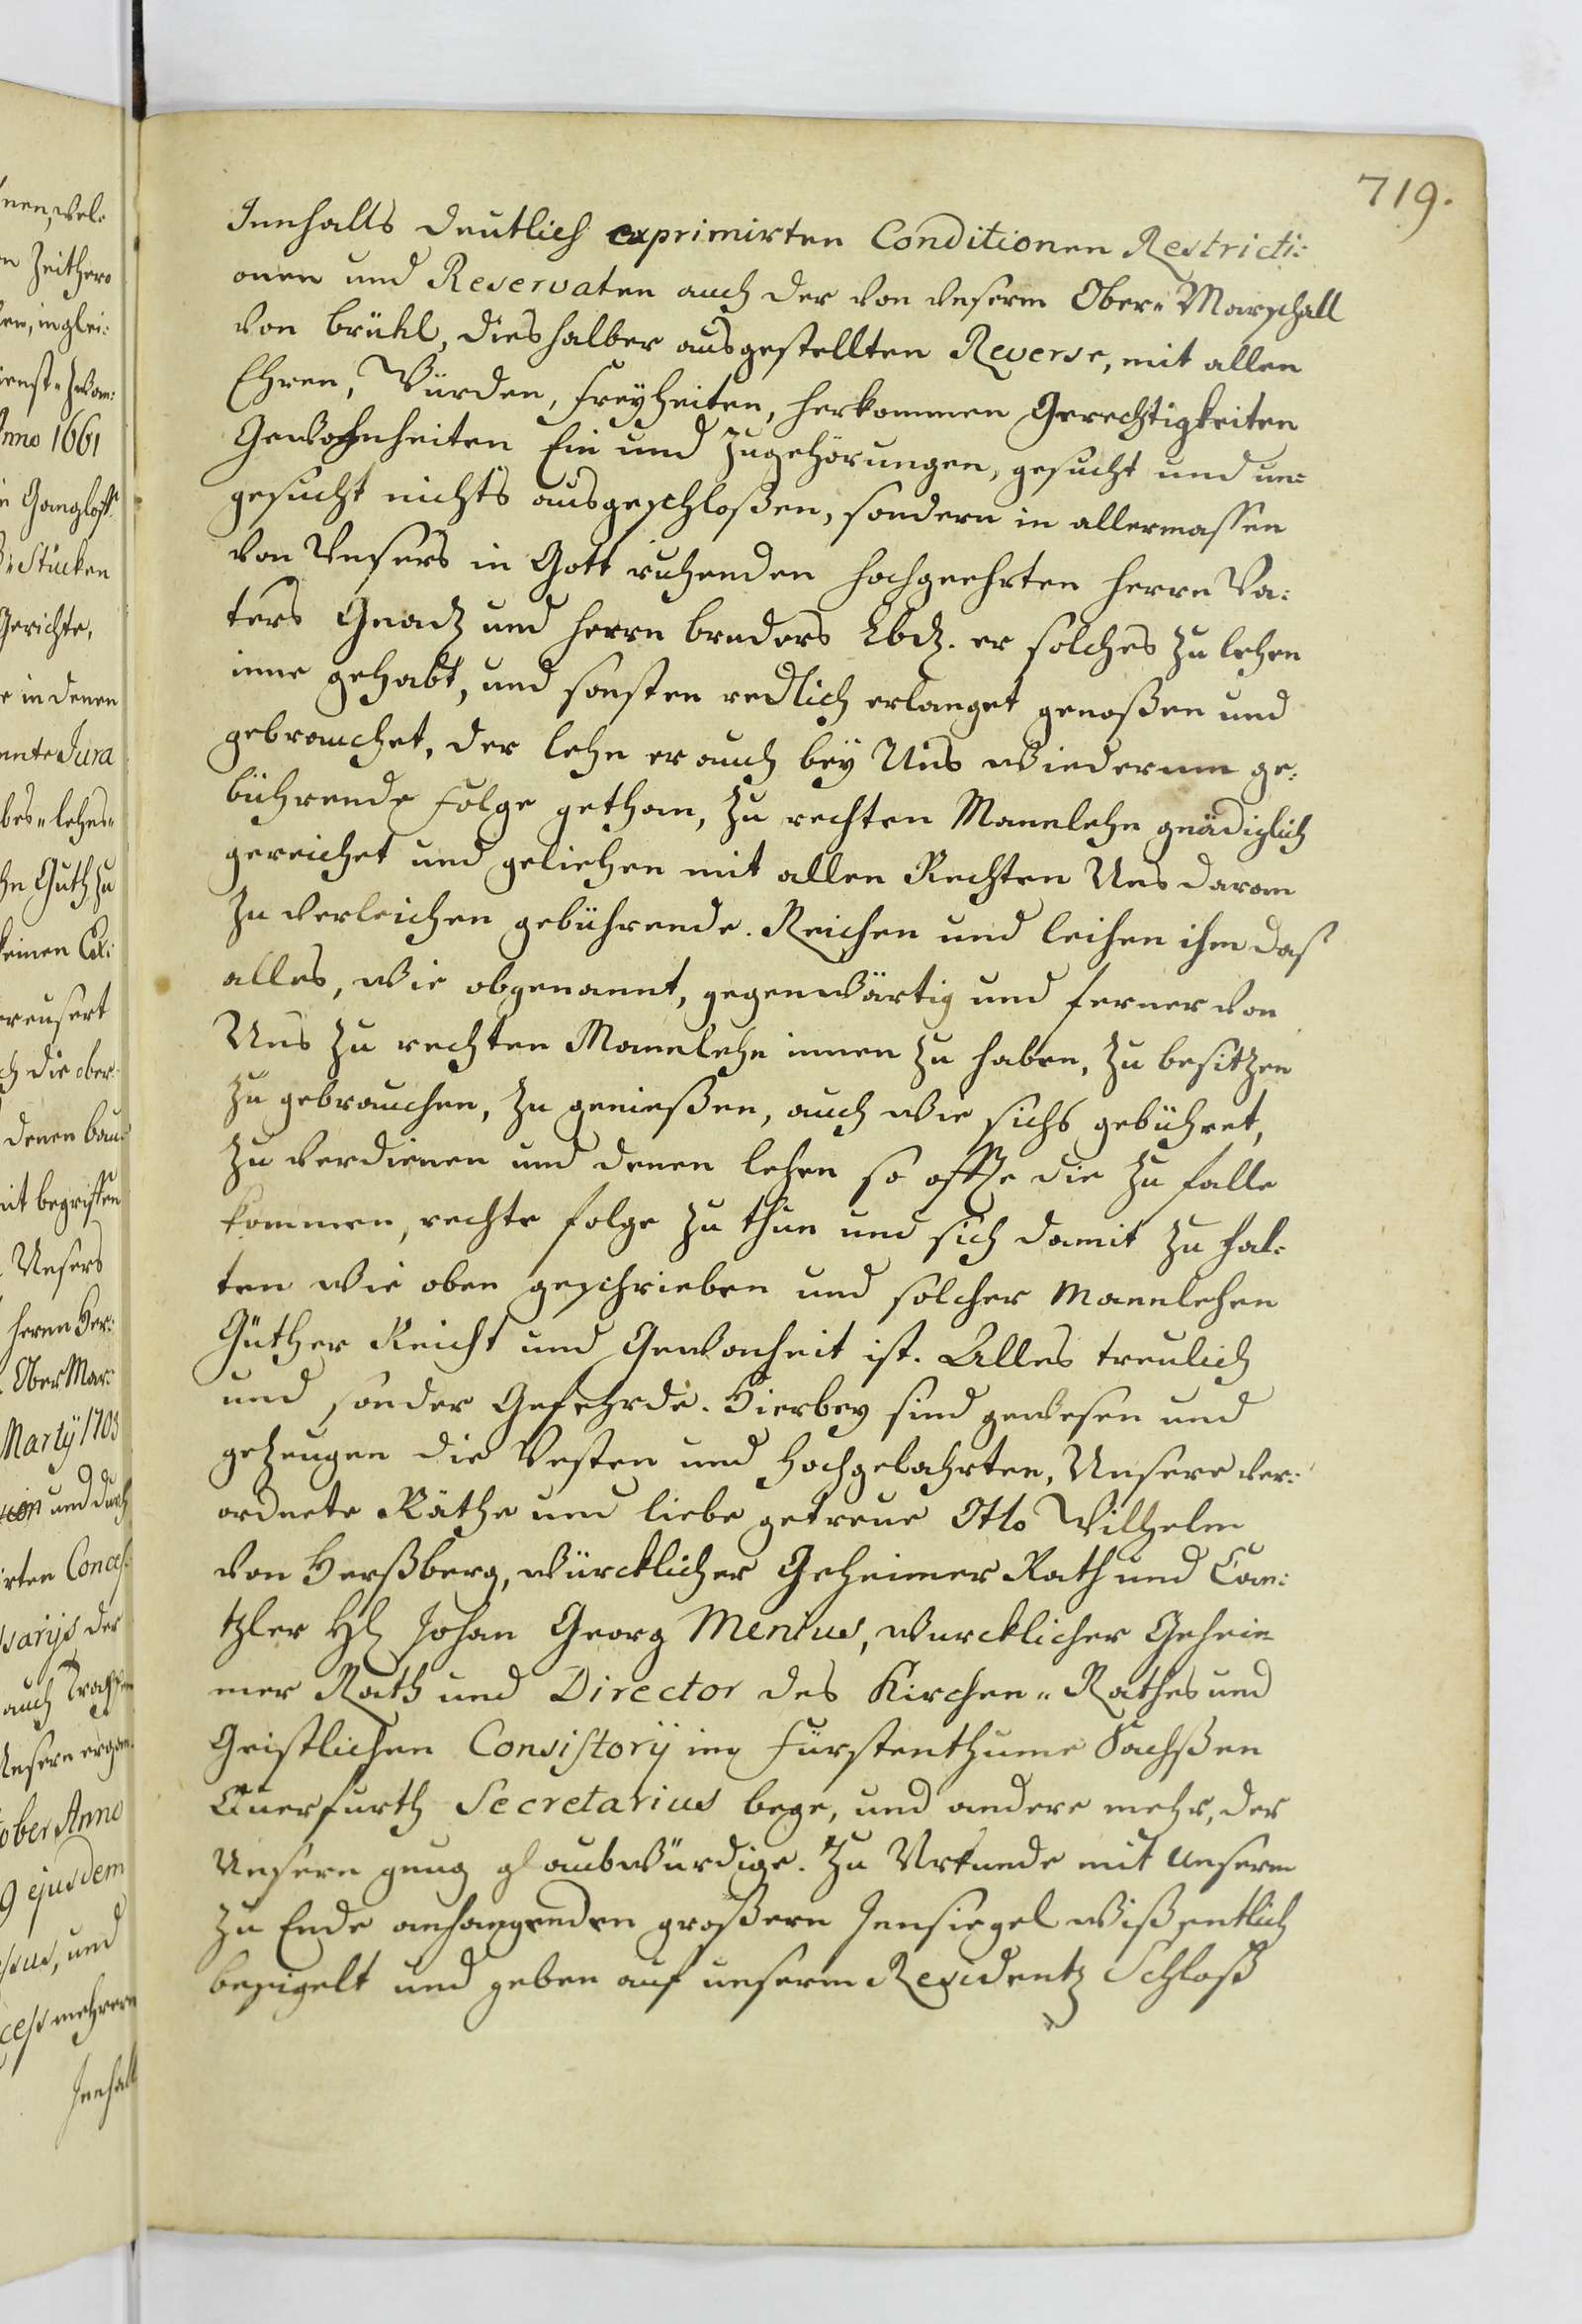 719.
Innhalts deutlich exprimirten Conditionen Restricti:
onen und Reservaten auch der von unserm Ober„Marschall
von brühl, dieshalber ausgestellten Reverse, mit allen
Ehren, Würden, freyheiten, herkommen Gerechtigkeiten
Gewohnheiten Ein und Zugehörungen, gesucht und un=
gesucht nichts ausgeschloßen, sondern in allermassen
von Unsers in Gott ruhenden hochgeehrten herrn Va:
ters Gnad. und herrn bruders Lbd. er solches zu lehen
inne gehabt, und sonsten redlich erlanget genoßen und
gebrauchet, der lehn er auch bey Uns wiederum ge:
bührende folge gethan, zu rechten Mannlehn gnädiglich
gereichet und geliehen mit allen Rechten Uns daran
zu verleichen gebührende. Reichen und leihen ihm das
alles, wie obgenannt, gegenwärtig und ferner von
Uns zu rechten Mannlehn innen zu haben, zu besitzen
zu gebrauchen, zu genießen, auch wie sichs gebühret,
zu verdienen und denen lehen so offte die zu falle
kommen, rechte folge zu thun und sich damit zu hal:
ten wie oben geschrieben und solcher Mannlehen
Güther Reicht und Gewonheit ist. Alles treulich
und sonder Gefehrde. Hierbey sind gewesen und
gezeugen die Vesten und hochgelahrten, Unsere ver:
ordnete Räthe und liebe getreue Otto Wilhelm
von Herßberg, würcklicher Geheimer Rath und Can:
tzler H. Johan Georg Menius, wurcklicher Geheim
mer Rath und Director des Kirchen„Rathes und
Geistlichen Consistorij im fürstenthume Sachßen
Querfurth Secretarius bege, und andere mehr, der
Unsern genug glaubwürdige. Zu Urkunde mit Unserm
zu Ende anhangenden großern Innsiegel wißentlich
besigelt und geben auf unserm Residentz Schloß
nen, wel:
n Zeithero
en, inglei:
ienst„Zwan:
Anno 1661
n Gangloff
Stücken
Gerichte,
e in denen
ente Jura
bes„lehns„
hn Guth zu
keinen
ereusert
ch die ober
denen bau:
mit begriffen
Unsers
herrn Her:
Ober Mar:
Marty 1703
und durch
rten Conces
sarijs der
auch
Unsern ergan
tober Anno
9 ejusdem
essus, und
cess mehrern
Innhalt